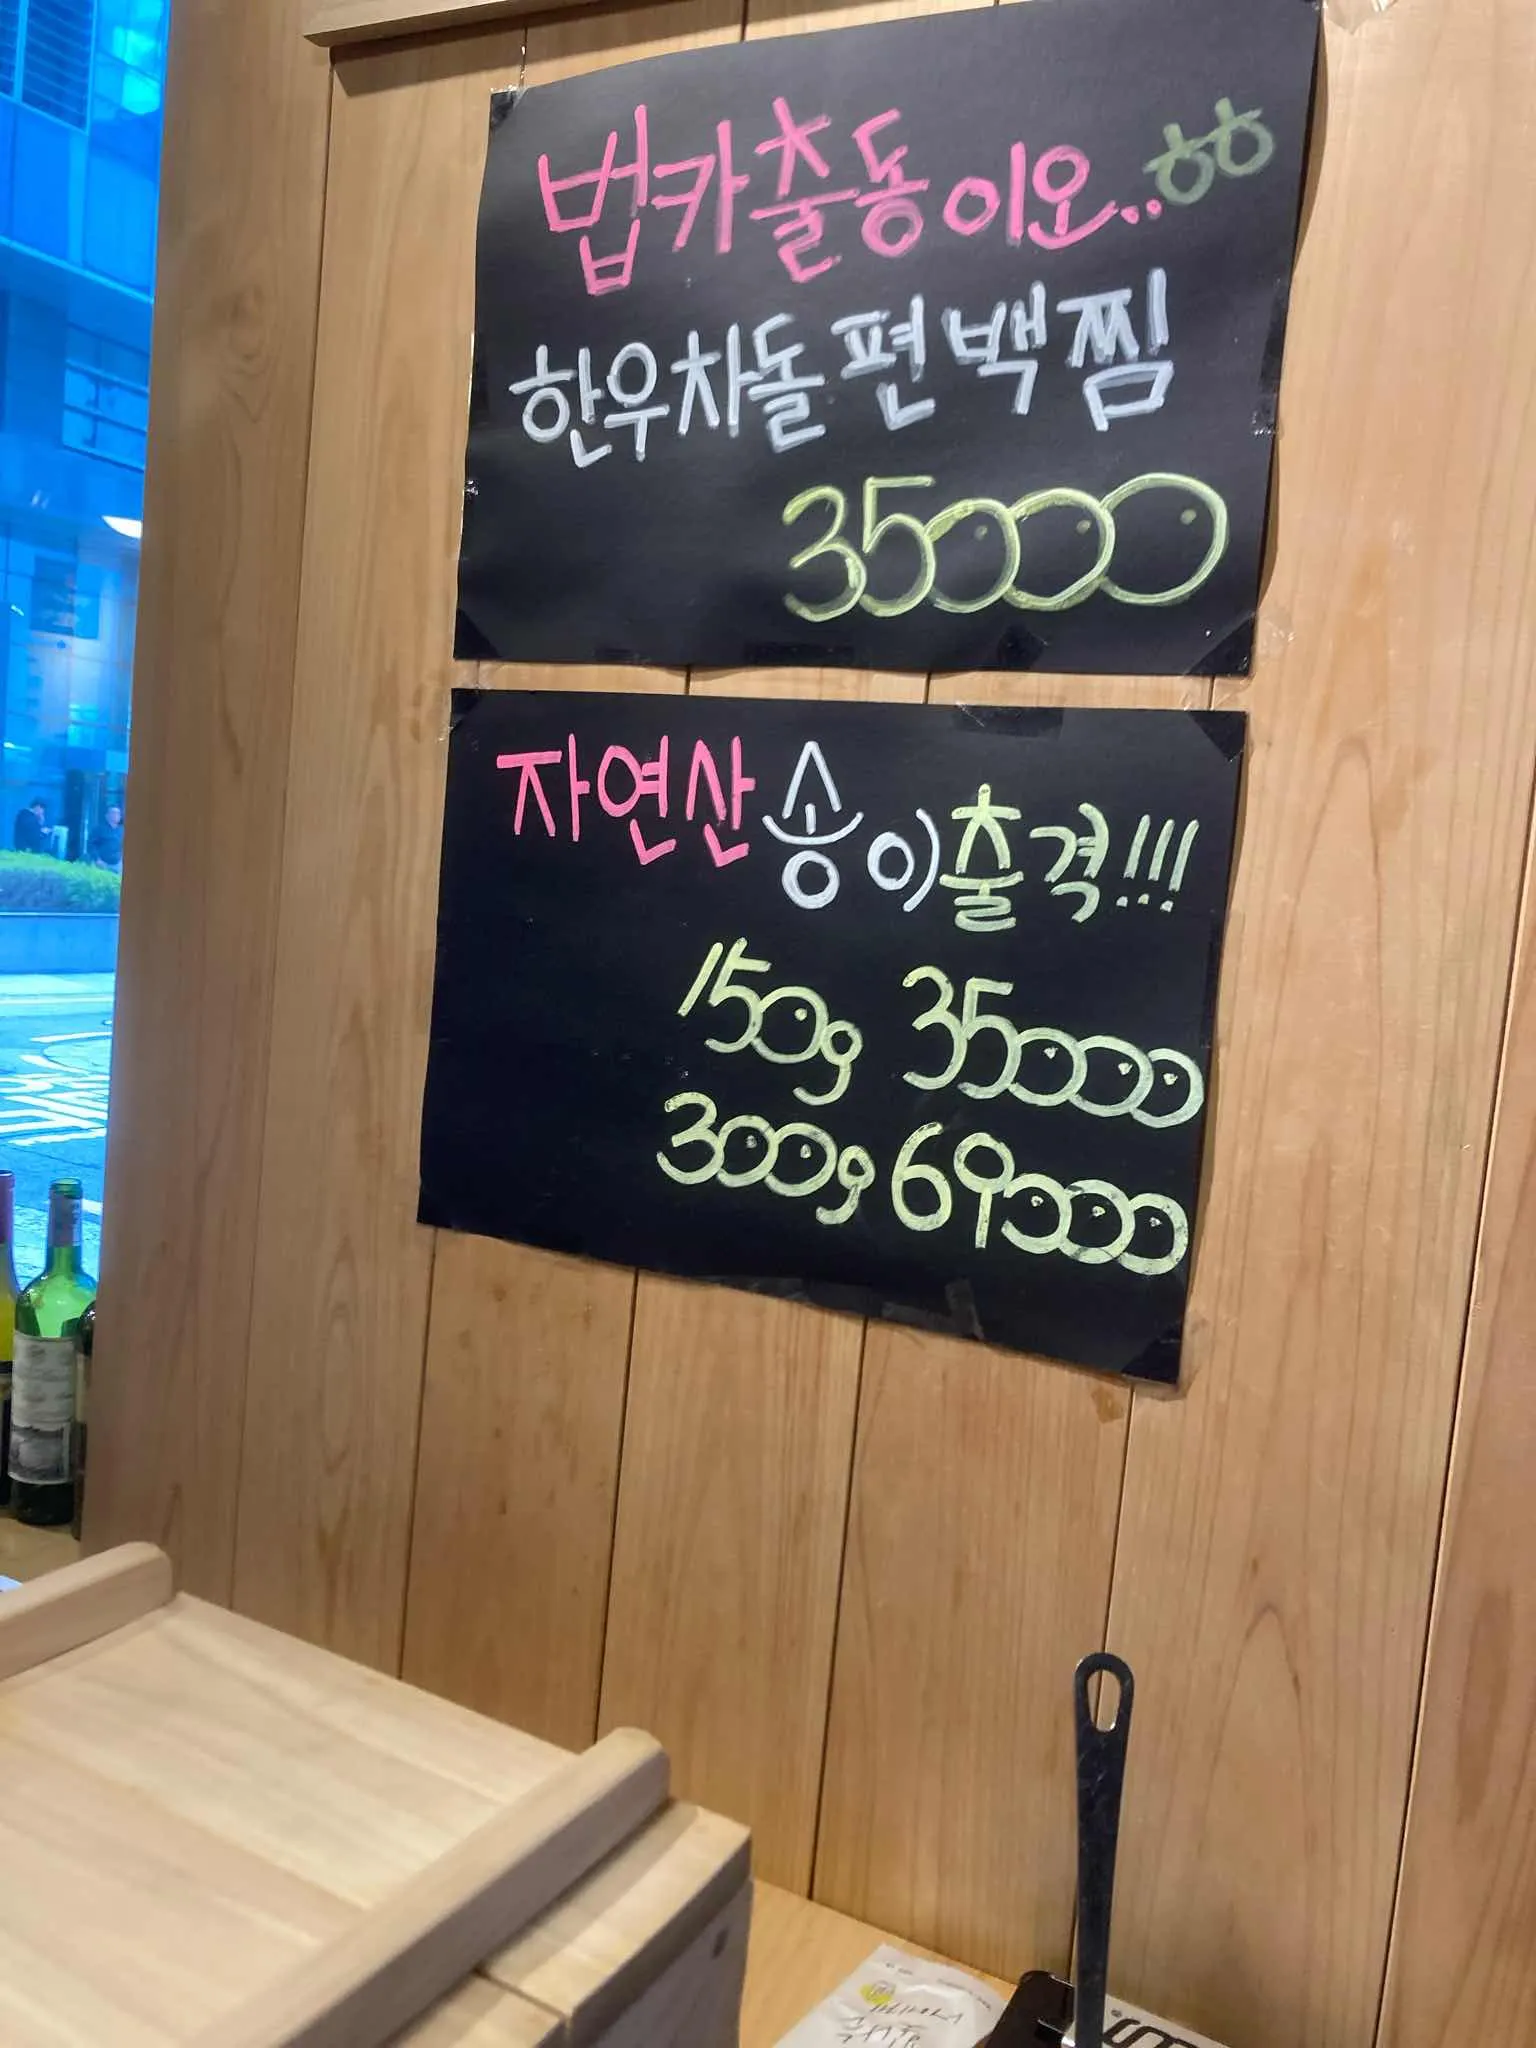 법카출동이오..ㅎㅎ
한우차돌편백찜
35000
자연산송이출격!!!
150g 35000
300g 69000